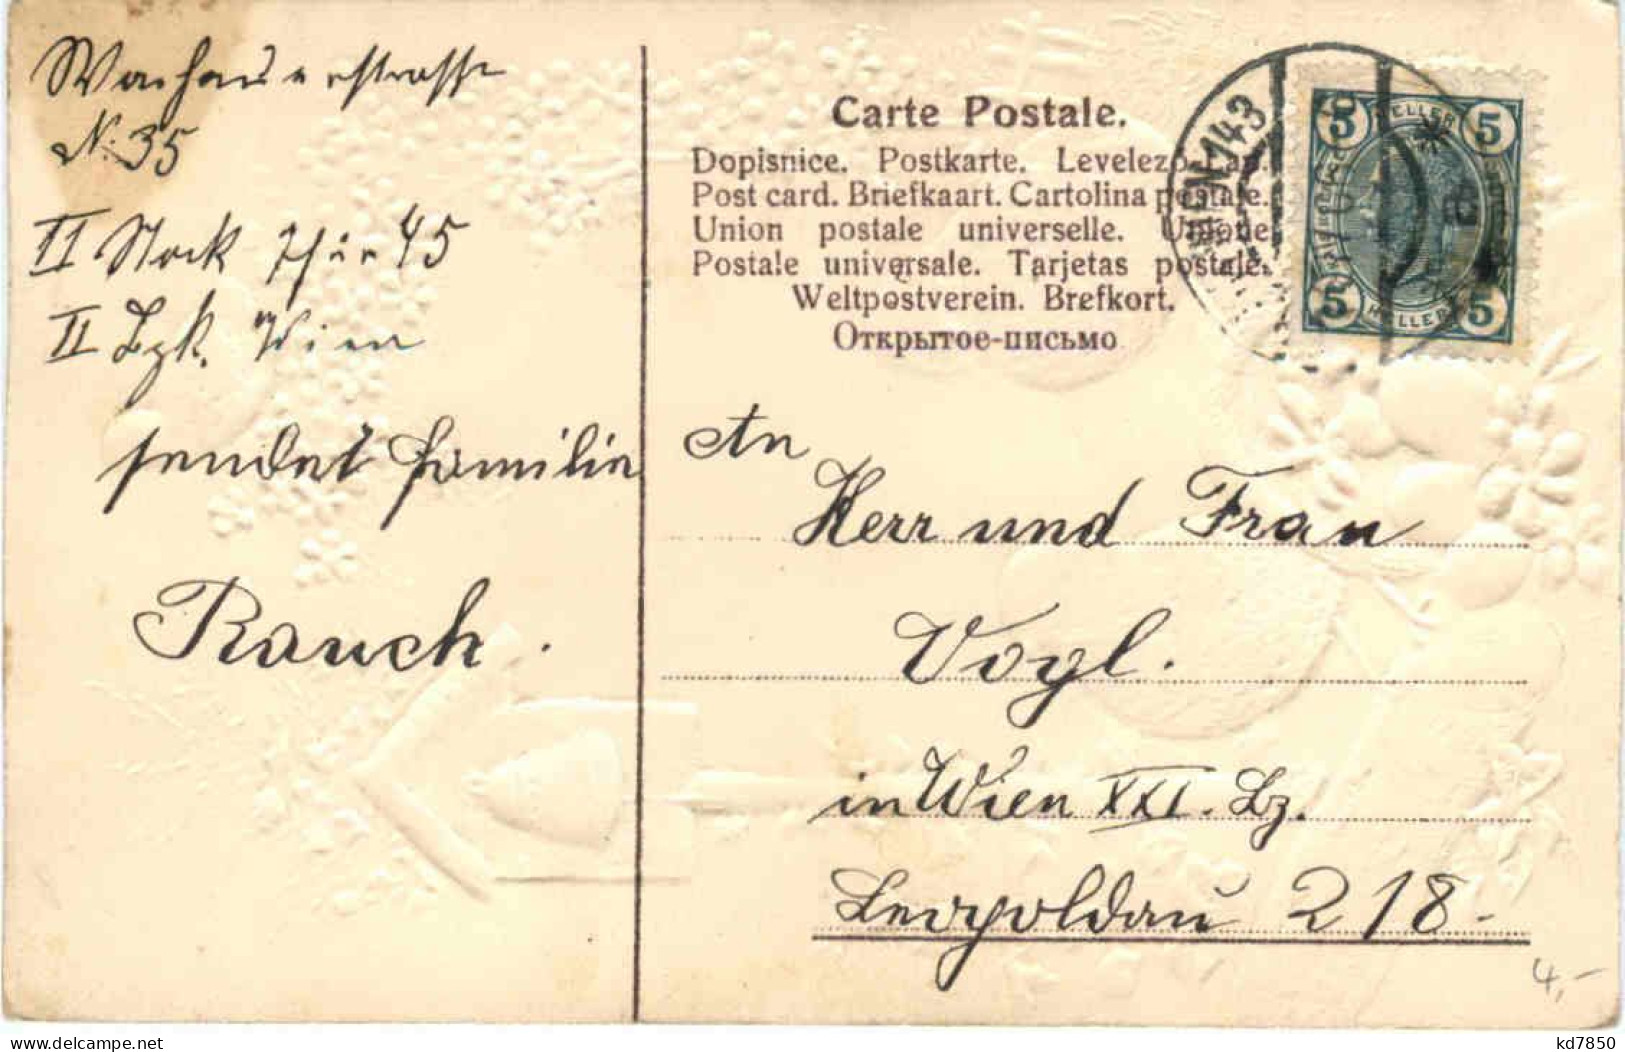 Wachauerstrasse
N. 35
II Stock Thür 45
II Bzk. Wien
sendet Familie
Rauch.
Carte Postale.
Dopisnice. Postkarte. Levelező-Lap.
Post card. Briefkaart. Cartolina postale.
Union postale universelle. Unione
Postale universale. Tarjetas postale.
Weltpostverein. Brefkort.
Открытое-письмо
WIEN 143
5 HELLER 5
5 HELLER 5
An
Herr und Frau
Vogl.
in Wien XXI. Bz.
Leopoldau 218.
4,-
delcampe.net
kd7850